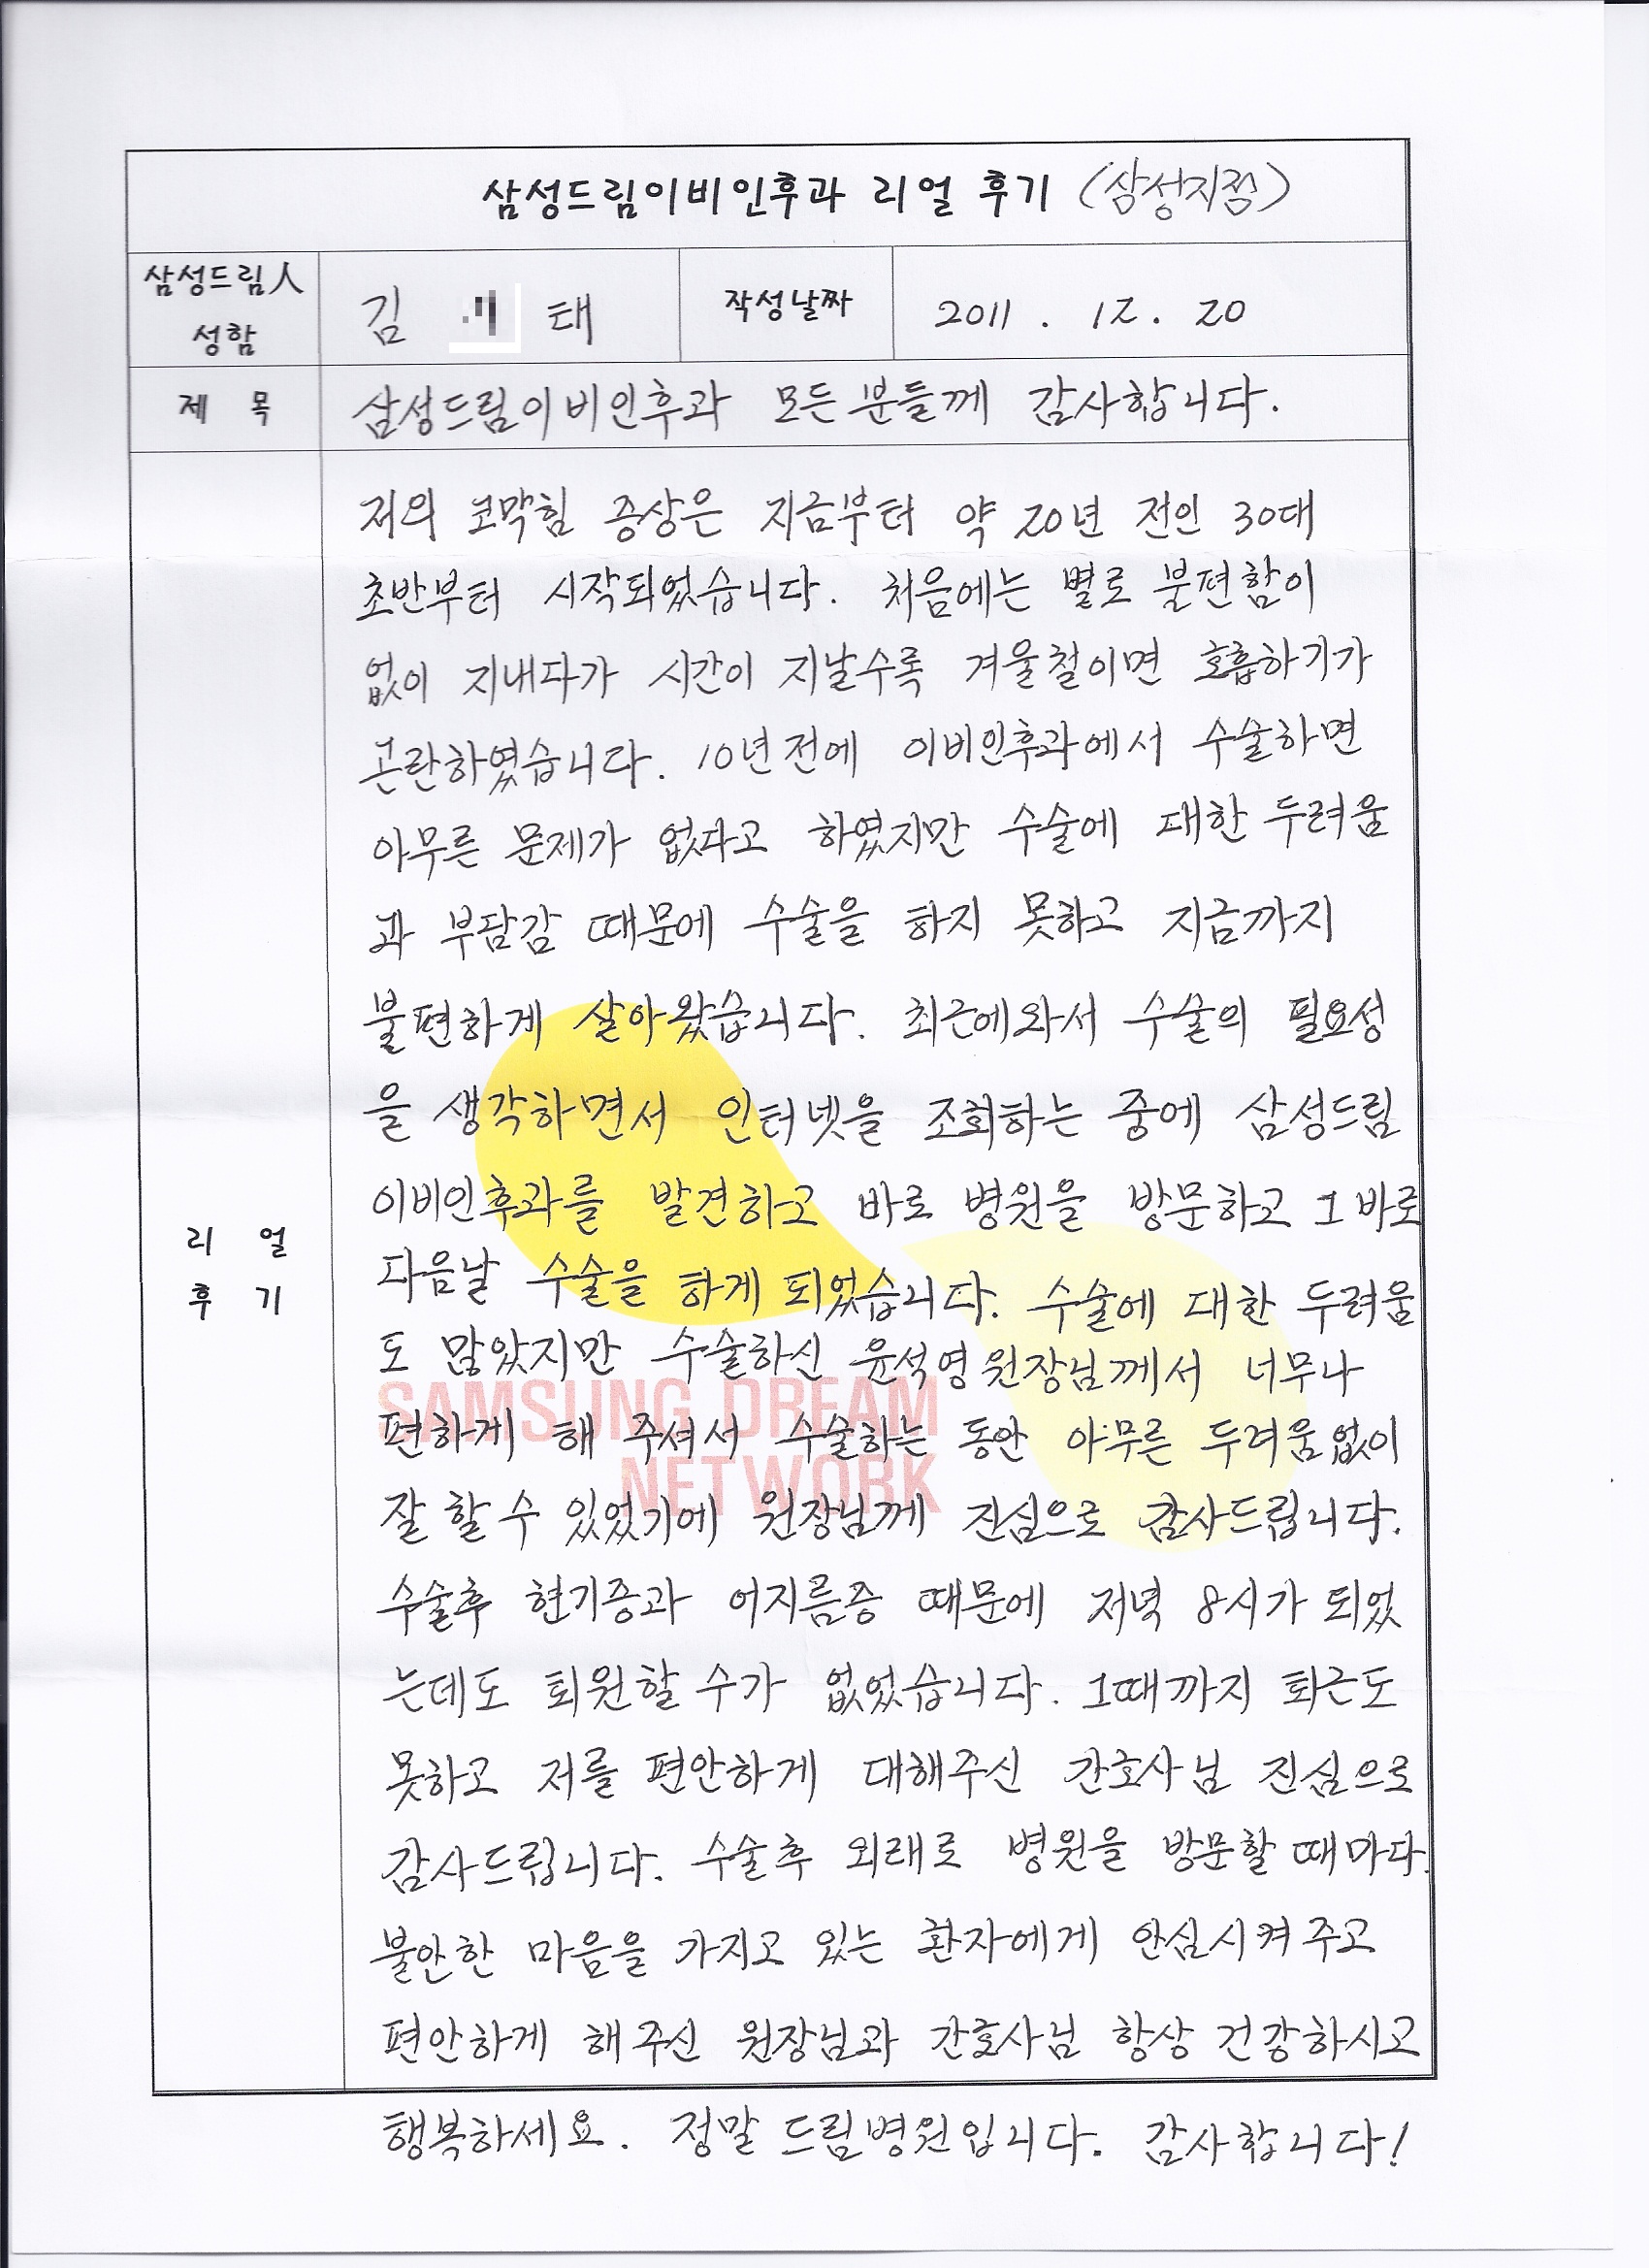 삼성드림이비인후과 리얼 후기 (삼성지점)
삼성드림人 성함
김 태
작성날짜
2011 . 12 . 20
제 목
삼성드림이비인후과 모든분들께 감사합니다.
리 얼
후 기
저의 코막힘 증상은 지금부터 약 20년 전인 30대
초반부터 시작되었습니다. 처음에는 별로 불편함이
없이 지내다가 시간이 지날수록 겨울철이면 호흡하기가
곤란하였습니다. 10년전에 이비인후과에서 수술하면
아무른 문제가 없다고 하였지만 수술에 대한 두려움
과 부담감 때문에 수술을 하지 못하고 지금까지
불편하게 살아왔습니다. 최근에와서 수술의 필요성
을 생각하면서 인터넷을 조회하는 중에 삼성드림
이비인후과를 발견하고 바로 병원을 방문하고 그 바로
다음날 수술을 하게 되었습니다. 수술에 대한 두려움
도 많았지만 수술하신 윤석영원장님께서 너무나
편하게 해 주셔서 수술하는 동안 아무른 두려움없이
잘 할수 있었기에 원장님께 진심으로 감사드립니다.
수술후 현기증과 어지름증 때문에 저녁 8시가 되었
는데도 퇴원할 수가 없었습니다. 그때까지 퇴근도
못하고 저를 편안하게 대해주신 간호사님 진심으로
감사드립니다. 수술후 외래로 병원을 방문할 때마다.
불안한 마음을 가지고 있는 환자에게 안심시켜주고
편안하게 해주신 원장님과 간호사님 항상 건강하시고
행복하세요. 정말 드림병원입니다. 감사합니다!
SAMSUNG DREAM
NETWORK